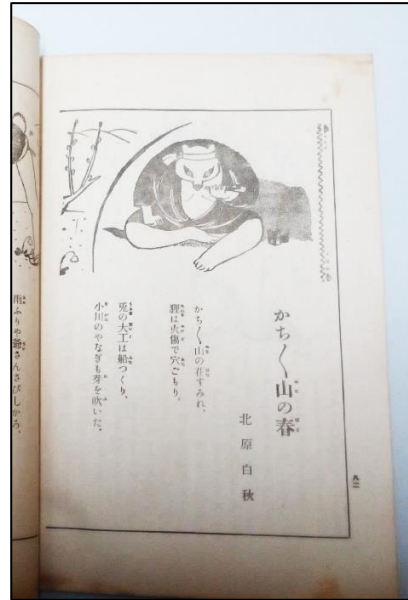 かち〱山の春
北原白秋
かち〱山の花すみれ、
狸は火傷で穴ごもり、
兎の大工は船つくり、
小川のやなぎも芽を吹いた。
雨ふりや爺さんさびしかろ、
八二